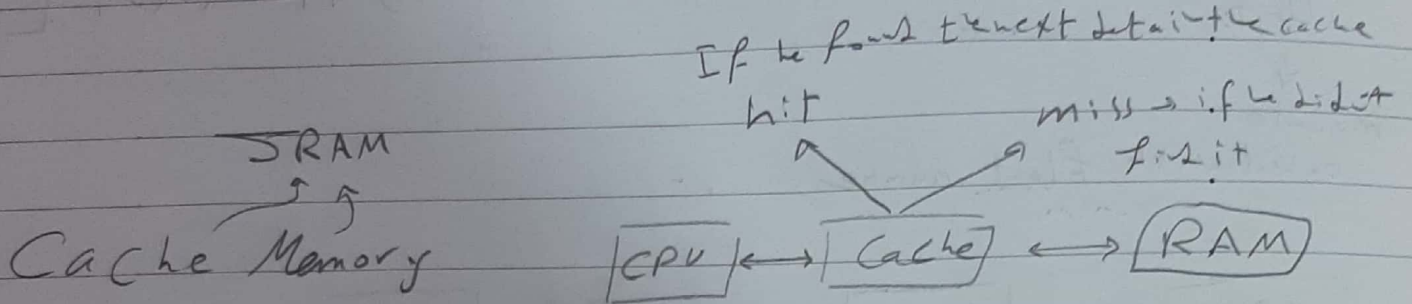 If he found the next data in the cache
hit
miss → if he didnt
find it
SRAM
Cache Memory
CPU ↔ Cache ↔ RAM